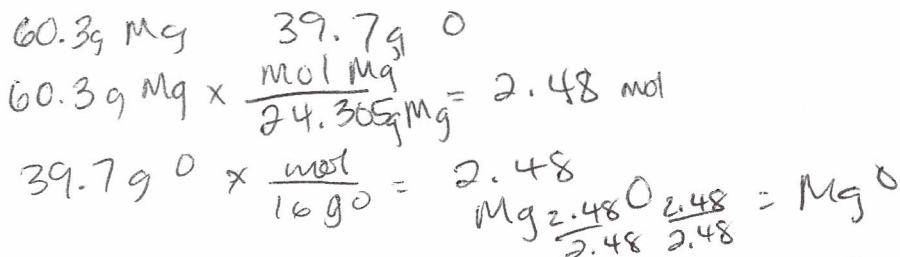 60.3g Mg 39.7g O
60.3g Mg × mol Mg / 24.305g Mg = 2.48 mol
39.7g O × mol / 16 g O = 2.48
Mg 2.48/2.48 O 2.48/2.48 = MgO